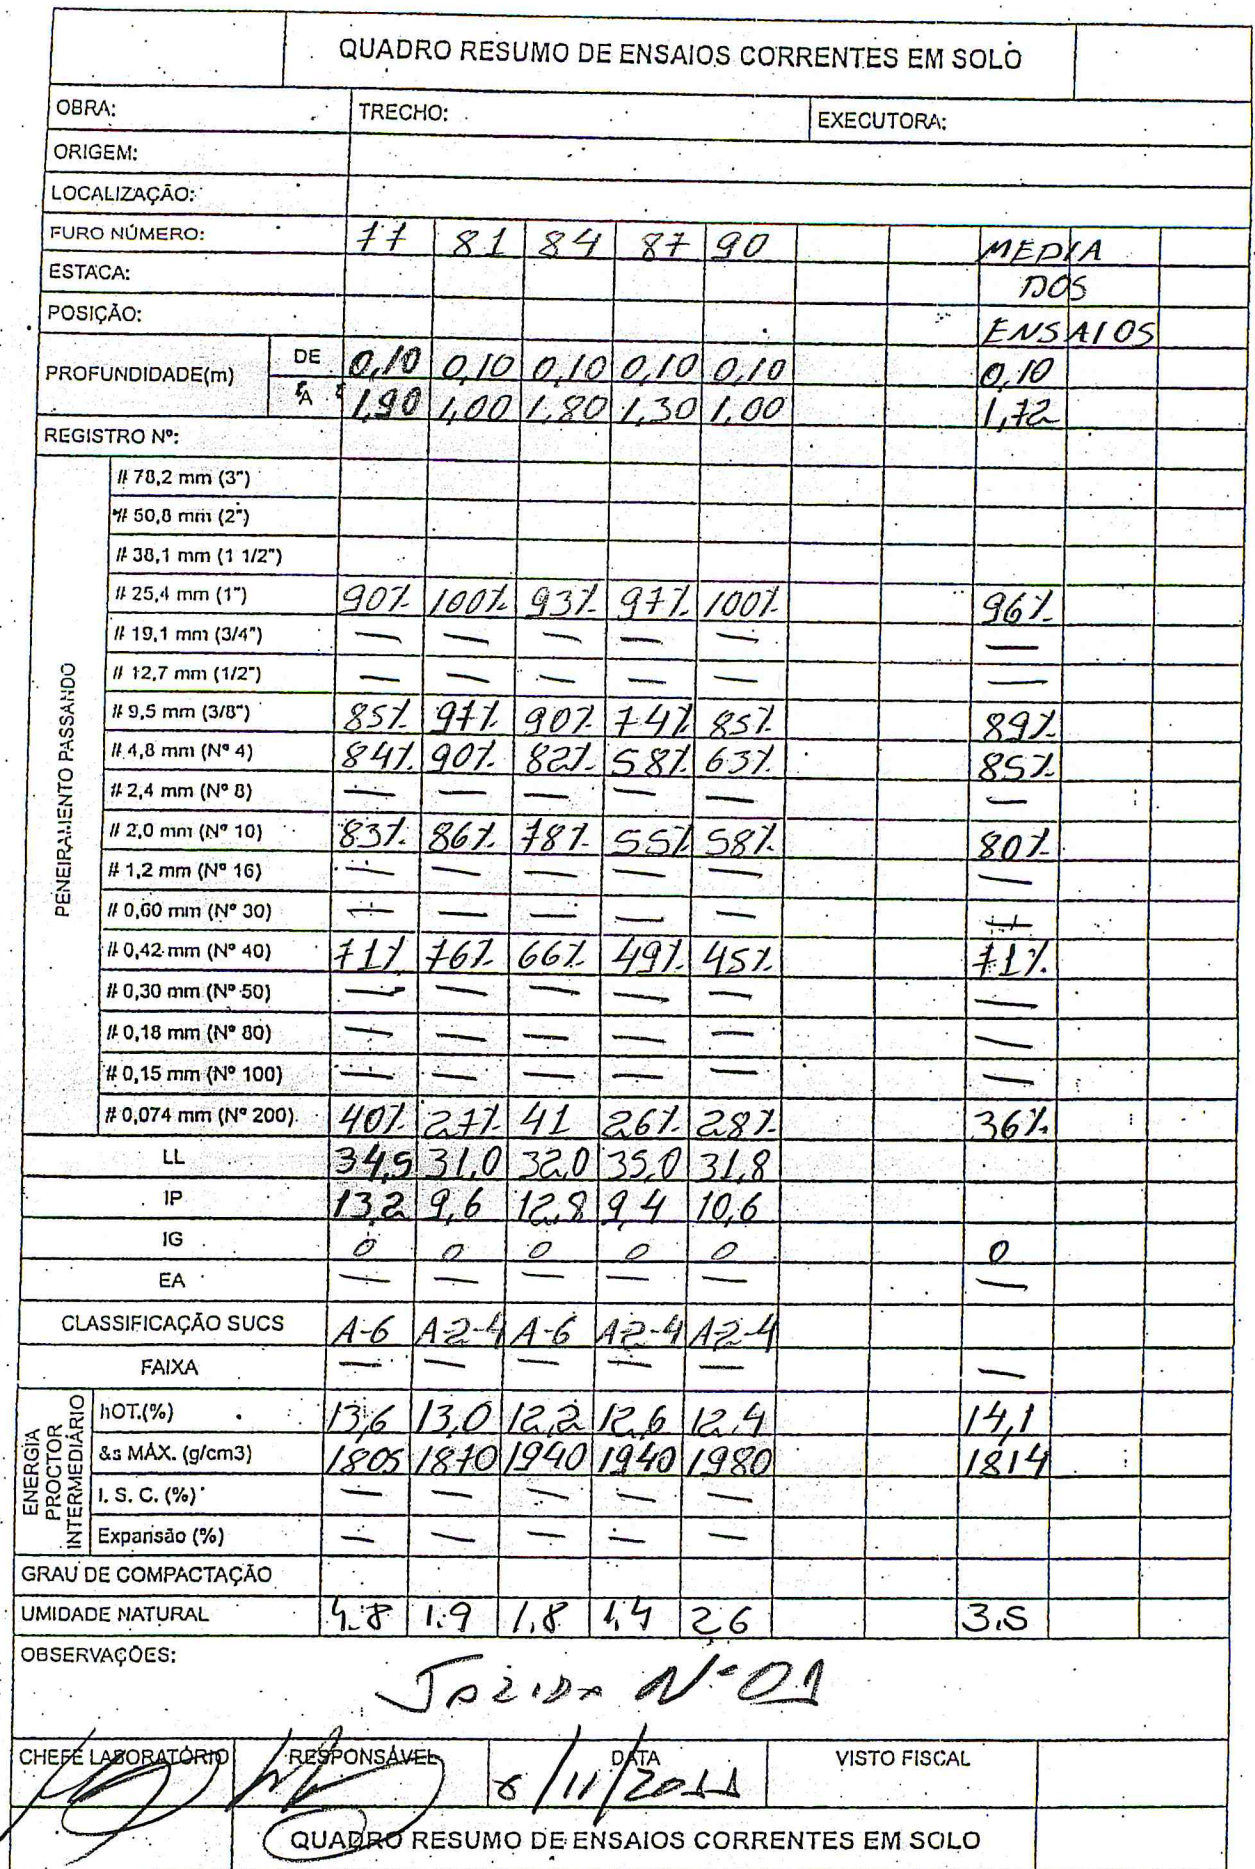 QUADRO RESUMO DE ENSAIOS CORRENTES EM SOLO
OBRA: TRECHO: EXECUTORA:
ORIGEM:
LOCALIZAÇÃO:
FURO NÚMERO: 77 81 84 87 90 MEDIA
ESTACA: DOS
POSIÇÃO: ENSAIOS
PROFUNDIDADE(m) DE 0,10 0,10 0,10 0,10 0,10 0,10
A 1,90 1,00 1,80 1,30 1,00 1,72
REGISTRO Nº:
PENEIRAMENTO PASSANDO
# 78,2 mm (3")
# 50,8 mm (2")
# 38,1 mm (1 1/2")
# 25,4 mm (1") 90% 100% 93% 97% 100% 96%
# 19,1 mm (3/4") — — — — — —
# 12,7 mm (1/2") — — — — — —
# 9,5 mm (3/8") 85% 97% 90% 74% 85% 89%
# 4,8 mm (Nº 4) 84% 90% 82% 58% 63% 85%
# 2,4 mm (Nº 8) — — — — — —
# 2,0 mm (Nº 10) 83% 86% 78% 55% 58% 80%
# 1,2 mm (Nº 16) — — — — — —
# 0,60 mm (Nº 30) — — — — — —
# 0,42 mm (Nº 40) 71% 76% 66% 49% 45% 71%
# 0,30 mm (Nº 50) — — — — — —
# 0,18 mm (Nº 80) — — — — — —
# 0,15 mm (Nº 100) — — — — — —
# 0,074 mm (Nº 200) 40% 27% 41 26% 28% 36%
LL 34,5 31,0 32,0 35,0 31,8
IP 13,2 9,6 12,8 9,4 10,6
IG 0 0 0 0 0 0
EA — — — — — —
CLASSIFICAÇÃO SUCS A-6 A-2-4 A-6 A2-4 A-2-4
FAIXA — — — — — —
ENERGIA PROCTOR INTERMEDIÁRIO
hOT.(%) 13,6 13,0 12,2 12,6 12,4 14,1
&s MÁX. (g/cm3) 1805 1870 1940 1940 1980 1814
I. S. C. (%) — — — — —
Expansão (%) — — — — —
GRAU DE COMPACTAÇÃO
UMIDADE NATURAL 4.8 1.9 1,8 1,4 2,6 3.5
OBSERVAÇÕES:
JAZIDA Nº 01
CHEFE LABORATÓRIO RESPONSÁVEL DATA VISTO FISCAL
/11/2011
QUADRO RESUMO DE ENSAIOS CORRENTES EM SOLO